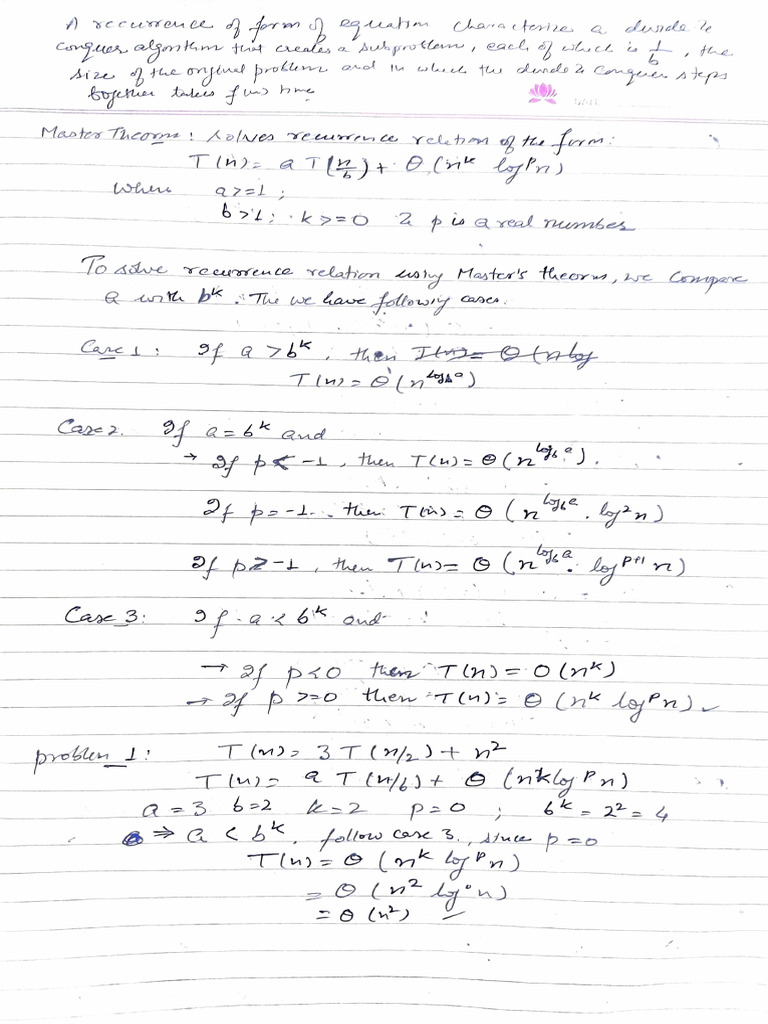 A recurrence of form of equation characterize a divide &
conquer algorithm that creates a subproblem, each of which is 1/b, the
size of the original problem and in which the divide & conquer steps
together takes f(n) time
Master Theorm: solves recurrence relation of the form:
T(n) = a T(n/b) + θ (n^k log^p n)
where a >= 1 ;
b > 1 ; k >= 0 & p is a real number
To solve recurrence relation using Master's theorm, we compare
a with b^k. The we have following cases.
Case 1 : If a > b^k, then T(n) = θ (n log
T(n) = θ (n^log_b a)
Case 2. If a = b^k and
→ If p < -1, then T(n) = θ (n^log_b a).
If p = -1. then T(n) = θ (n^log_b a . log² n)
If p > -1, then T(n) = θ (n^log_b a . log^p+1 n)
Case 3: If a < b^k and
→ If p < 0 then T(n) = O (n^k)
→ If p >= 0 then T(n) = θ (n^k log^p n)
problem 1 : T(n) = 3 T(n/2) + n²
T(n) = a T(n/b) + θ (n^k log^p n)
a = 3 b = 2 k = 2 p = 0 ; b^k = 2² = 4
⇒ a < b^k, follow case 3., since p = 0
T(n) = θ (n^k log^p n)
= θ (n² log⁰ n)
= θ (n²)